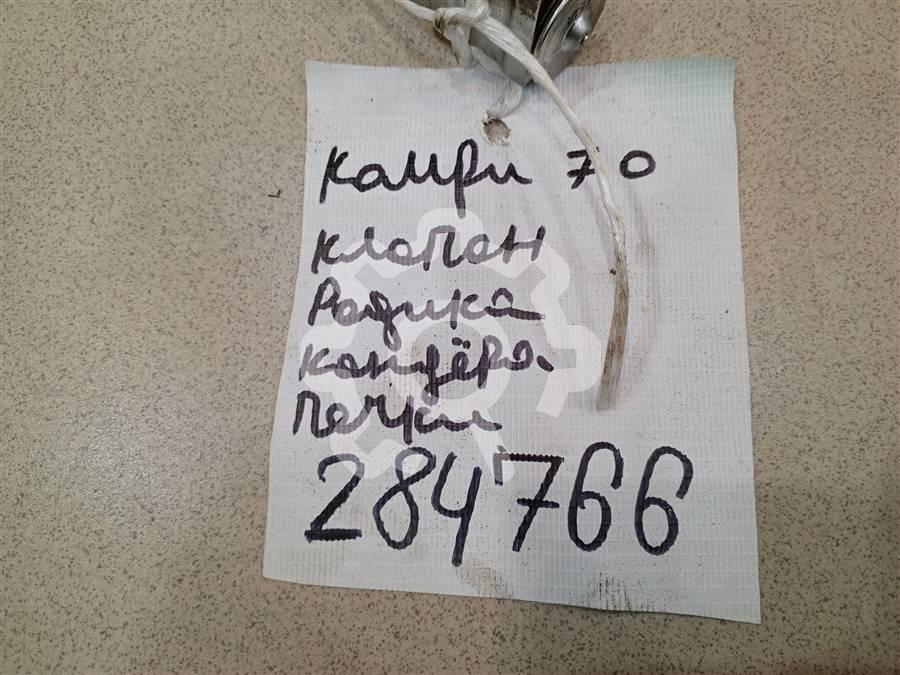 Камри 70
клапан
Радика
кондёра
печки
284766